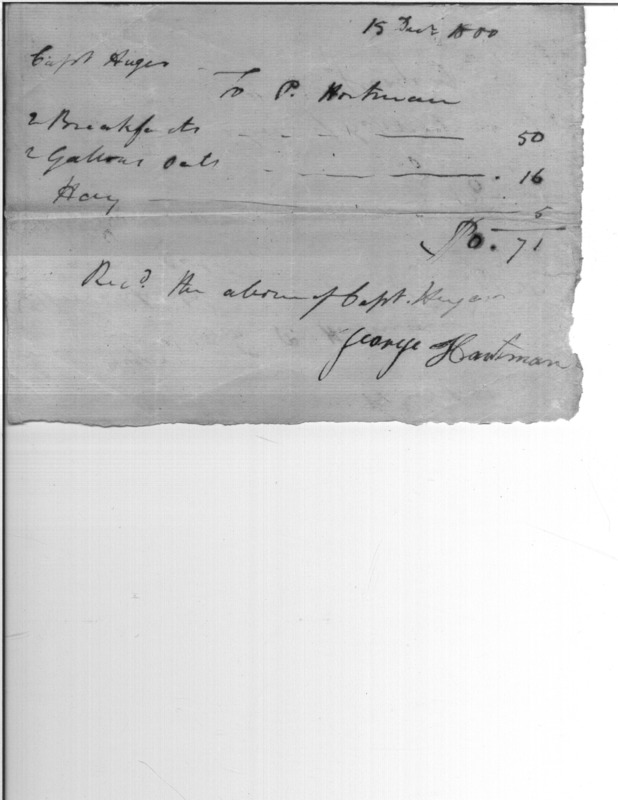 15 Decr 1800
Capt Huger
To P. Hartman
2 Breakfasts 50
2 Gallons Oats 16
Hay 5
Do. 71
Recd. the above of Capt. Huger
George Hartman